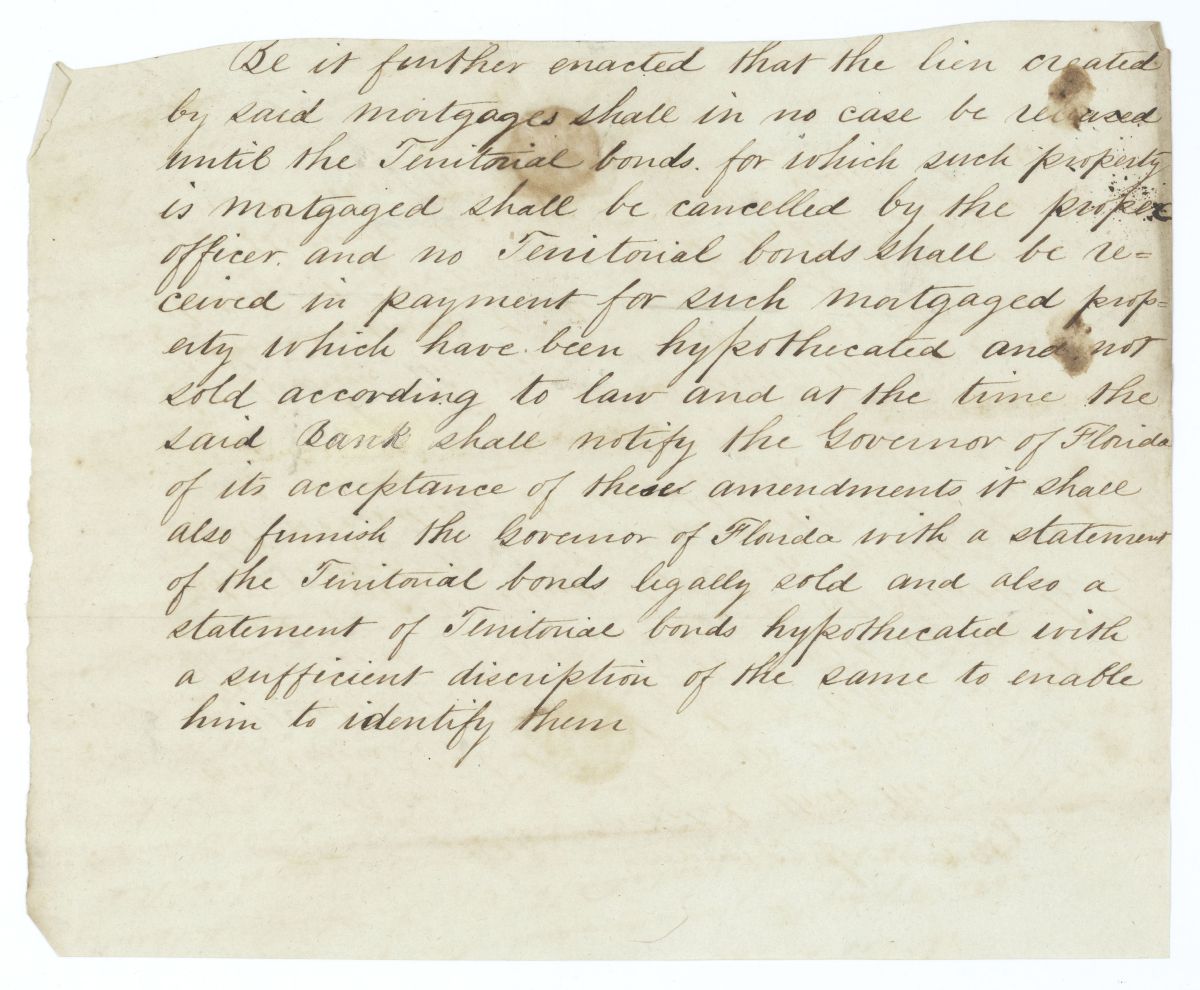 Be it further enacted that the lien created
by said mortgages shall in no case be released
until the Territorial bonds. for which such property
is mortgaged shall be cancelled by the proper
officer. and no Territorial bonds shall be re=
ceived in payment for such mortgaged prop=
erty which have been hypothecated and not
sold according to law and at the time the
said Bank shall notify the Governor of Florida
of its acceptance of these amendments it shall
also furnish the Governor of Florida with a statement
of the Territorial bonds legally sold and also a
statement of Territorial bonds hypothecated with
a sufficient discription of the same to enable
him to identify them